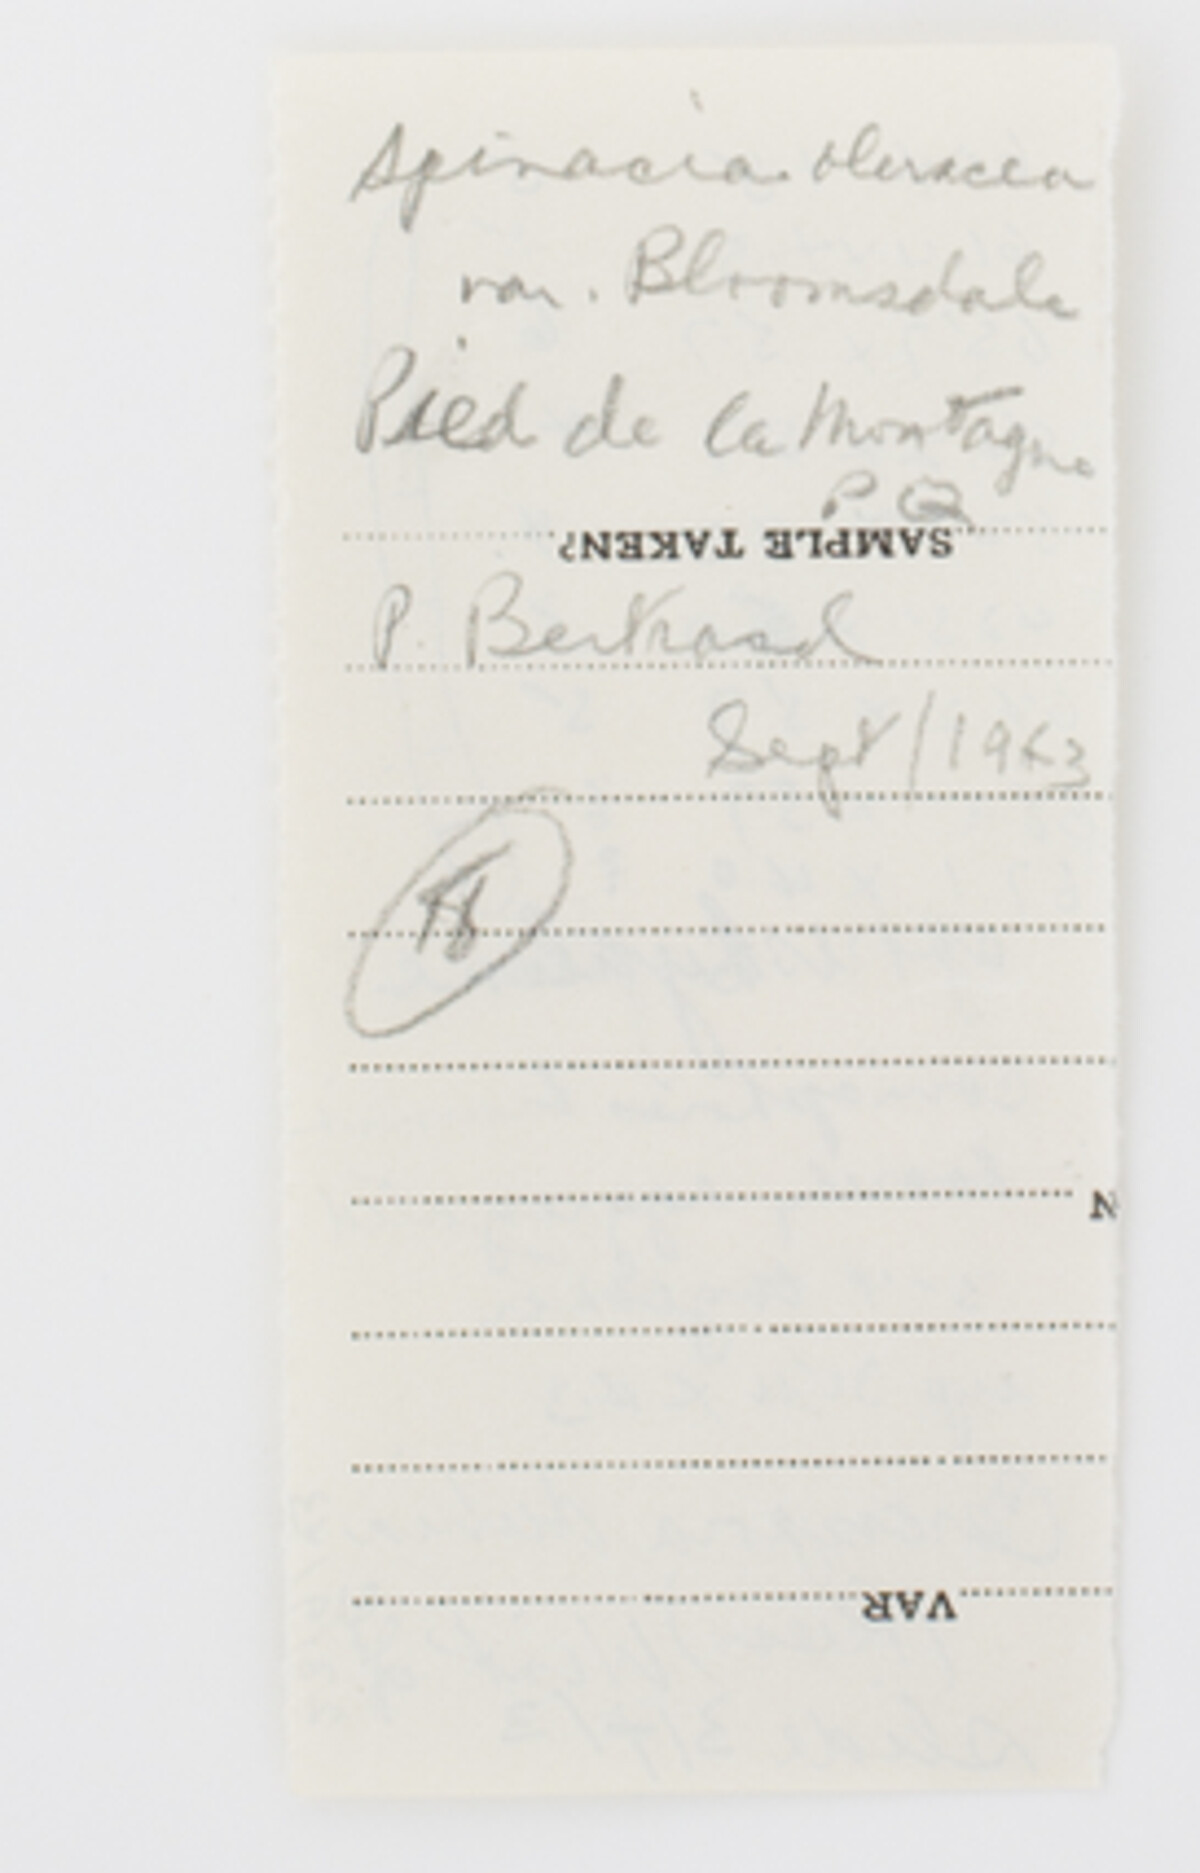 Spinacia oleracea
var. Bloomsdale
Pied de la Montagne
P Q
SAMPLE TAKEN?
P. Bertrand
Sept/1963
N
VAR